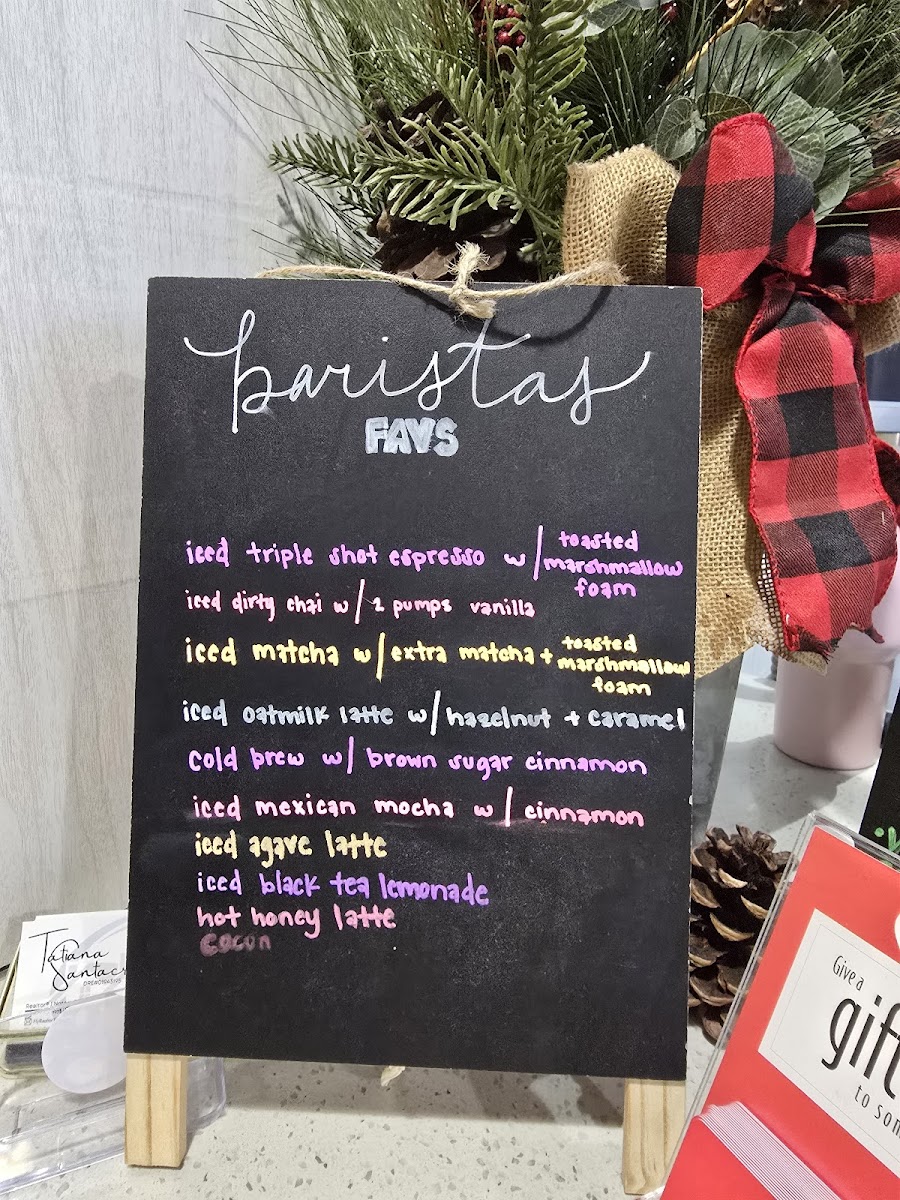 baristas
FAVS
iced triple shot espresso w/ toasted marshmallow foam
iced dirty chai w/ 2 pumps vanilla
iced matcha w/ extra matcha + toasted marshmallow foam
iced oatmilk latte w/ hazelnut + caramel
cold brew w/ brown sugar cinnamon
iced mexican mocha w/ cinnamon
iced agave latte
iced black tea lemonade
hot honey latte
Tatiana
Give a
gift
to